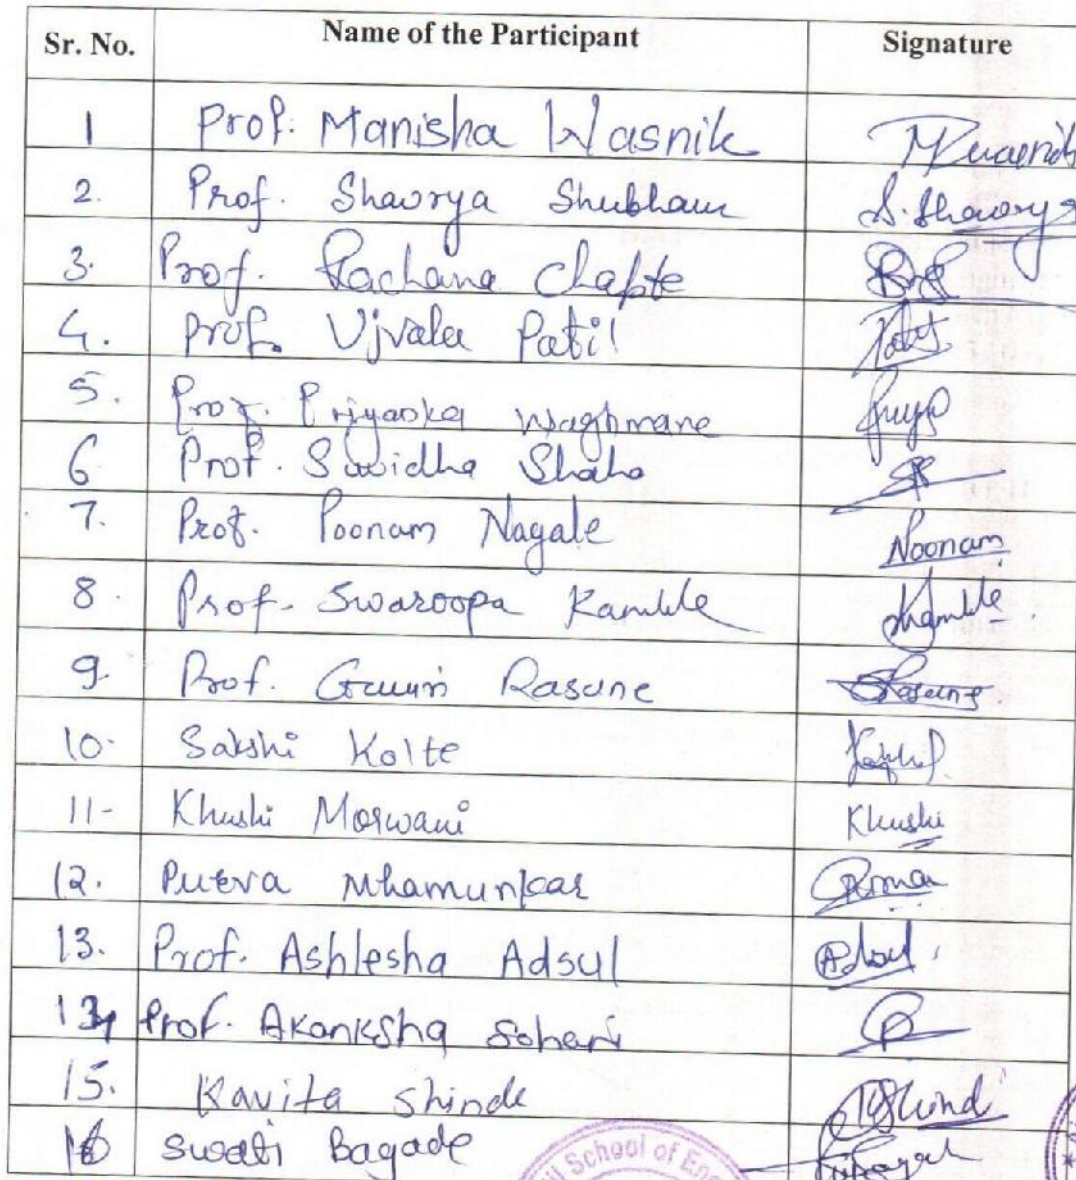 Sr. No. Name of the Participant Signature
1 Prof. Manisha Wasnik
2. Prof. Shaurya Shubham S. Shaurya
3. Prof. Rachana Chapte
4. Prof. Ujvala Patil
5. Prof. Priyanka Waghmare
6 Prof. Suvidha Shaha
7. Prof. Poonam Nagale Noonam
8. Prof. Swaroopa Kamble Kamble
9. Prof. Gauri Rasane
10. Sakshi Kolte
11- Khushi Morwani Khushi
12. Purva Mhamunkar
13. Prof. Ashlesha Adsul Adsul
14 Prof. Akanksha Sohani
15. Kavita Shinde
16 Swati Bagade
School of